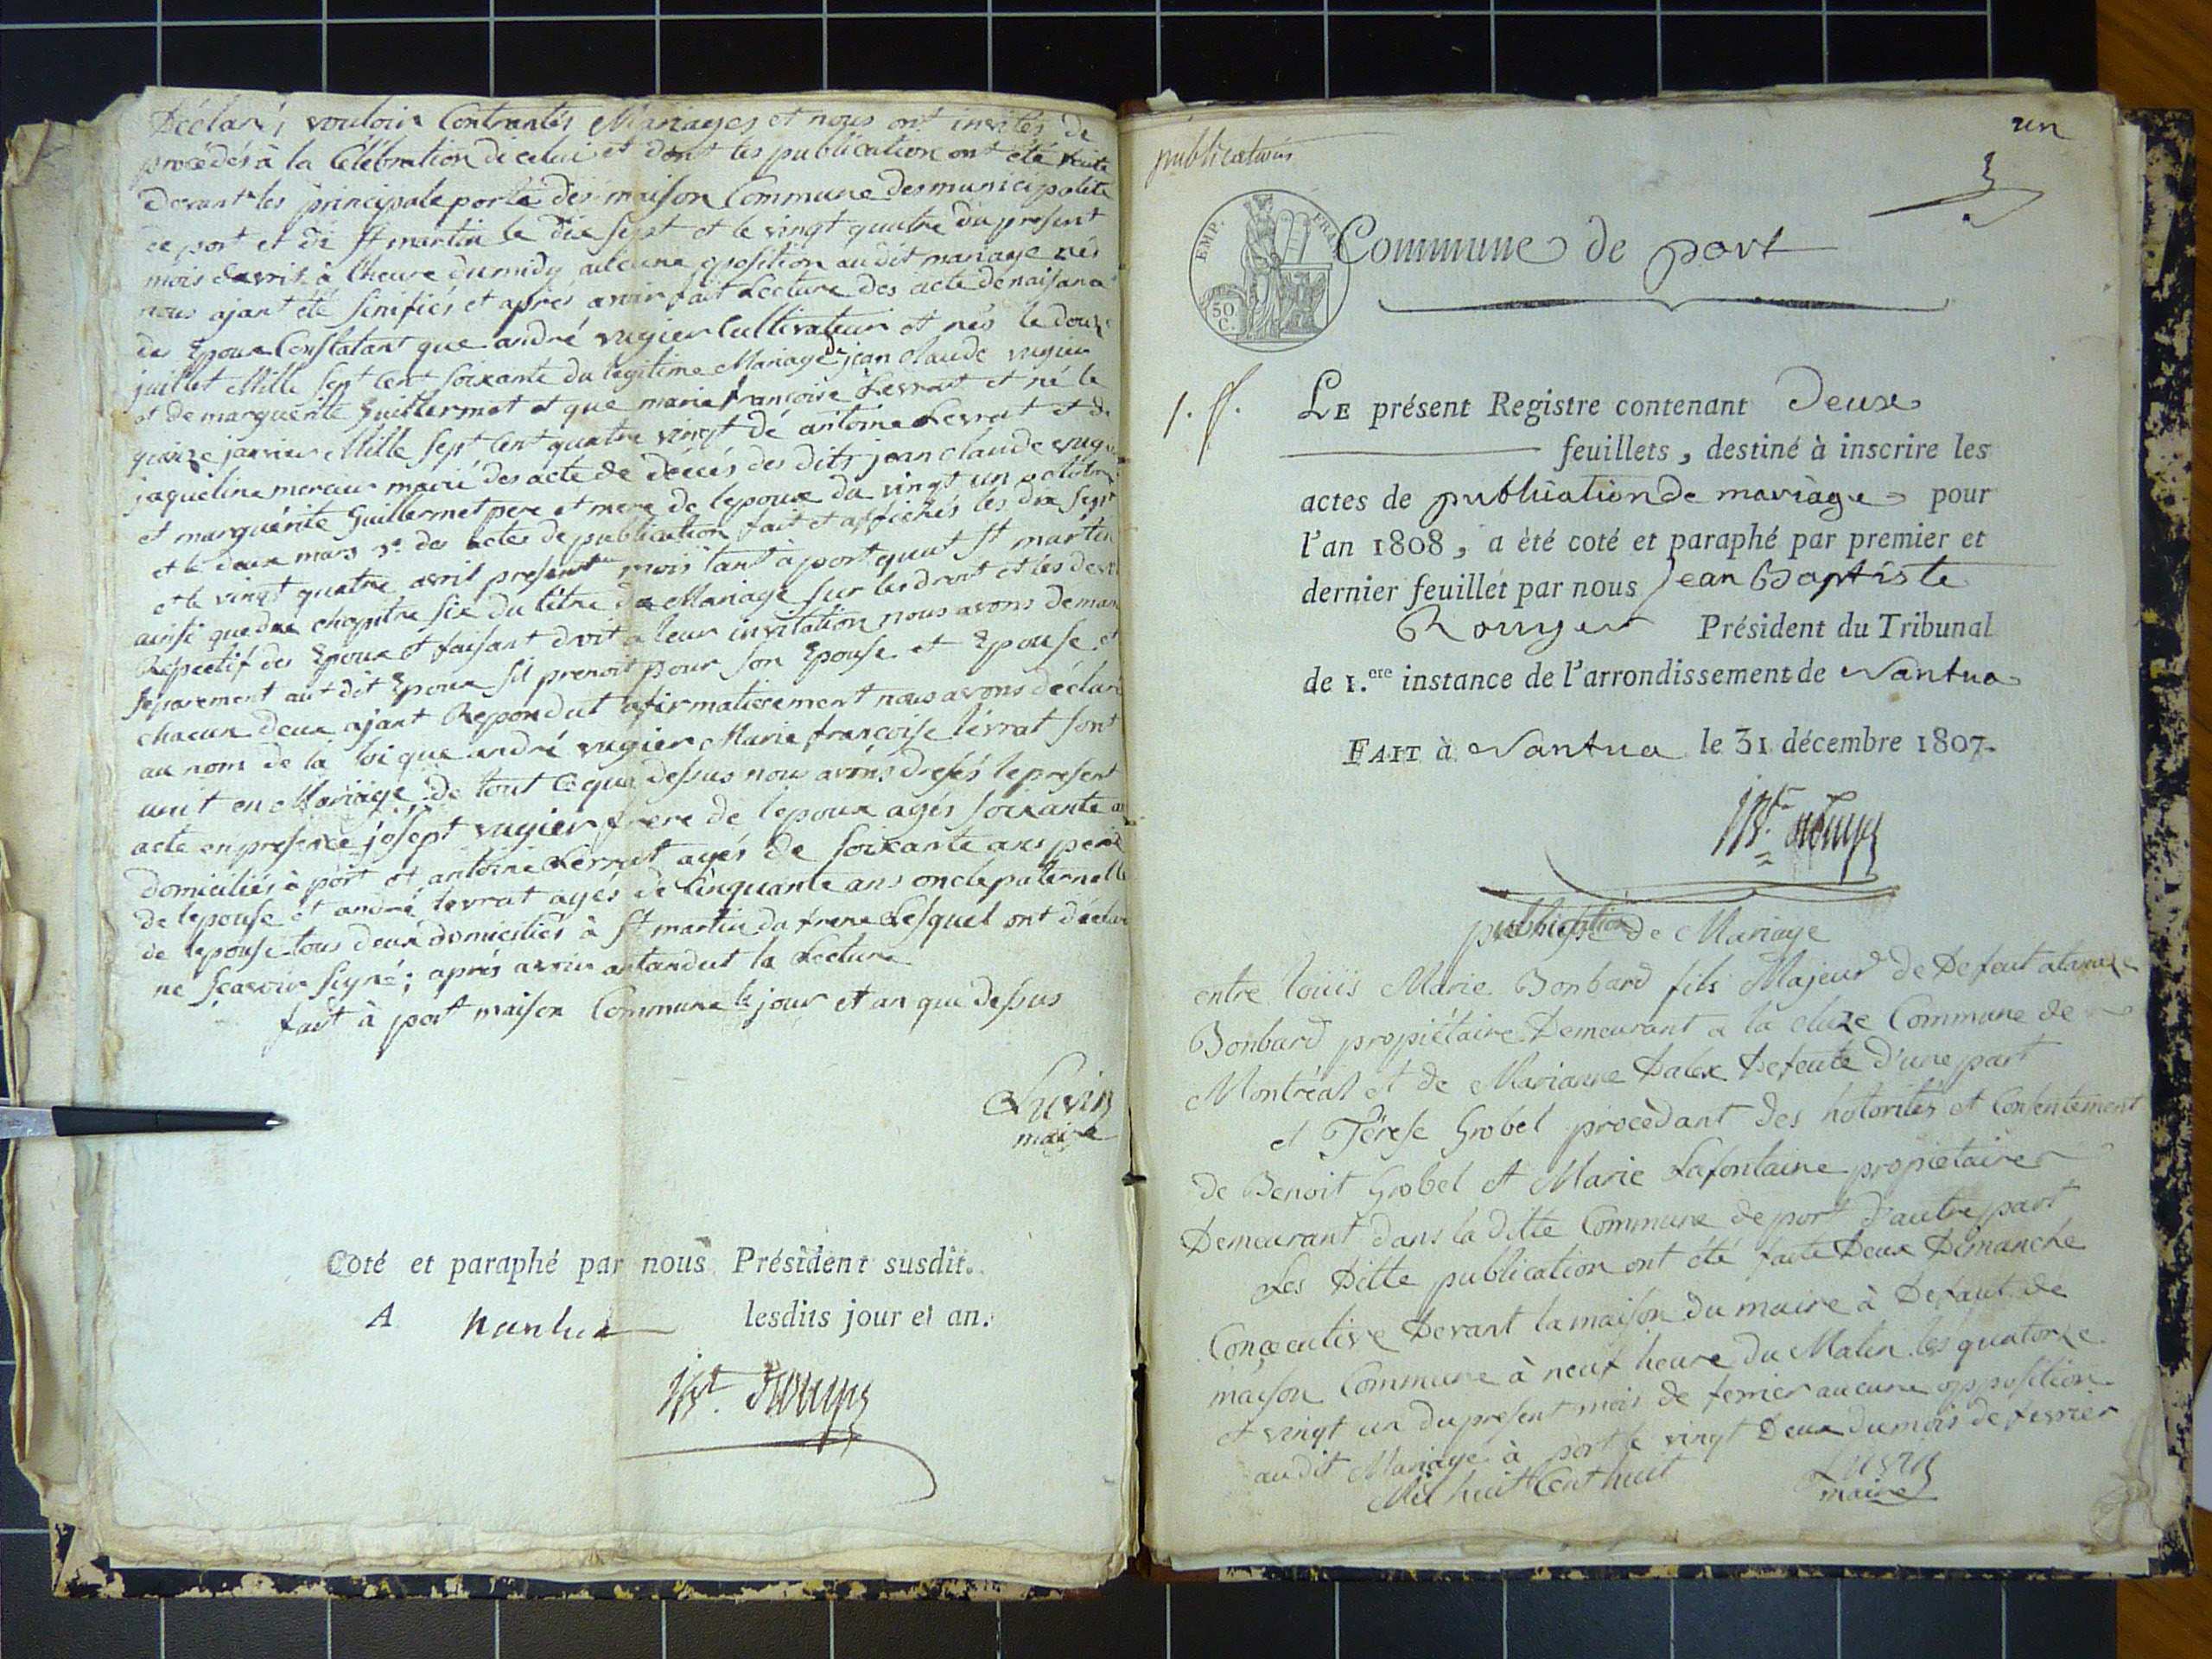 Déclarés vouloir Contractés Mariages et nous ont invités de
procédés à la Célébration dicelui et dont les publication ont été faite
devant les principale porte des maison Commune des municipalité
de port et de St martin le dix sept et le vingt quatre du present
mois davril à l'heure du midy aucune oposition audit mariage nés
nous ajant été sinifiés et aprés avoir fait Lecture des acte de naisance
des Epoux Constatant que andré vugier Cultivateur et nés le douze
juillet Mille Sept Cent soixante du légitime Mariage de jean claude vugier
et de marguerite Guillermet et que marie francoise Levrat et né le
quinze janvier Mille Sept Cent quatre vingt dé antoine Levrat et de
jaqueline mercier des acte de deicés des dits jean claude vugier
et marguérite Guillermet pere et mere de l'epoux du vingt un octobre
et le deux mars 3º des actes de publication fait et affichés les dix Sept
et le vingt quatre avril present mois tant à port quat St martin
ainsi que du chapitre six du titre de Mariage sur les droit et les devoir
Respectif des Epoux et faisant droit a leur invitation nous avons demandé
separement audit Epoux s'il prenoit pour son Epouse et Epouse et
chacun deux ajant Repondut afirmativement nous avons déclaré
au nom de la loi que andré vugier Marie françoise levrat sont
unit en Mariage de tout ce qua dessus nous avons dresés le present
acte en presence josept vugier frere de l'epoux agés soixante an
domiciliés à port et antoine Levrat agés de soixante ans pere
de lepouse et andré levrat agés de Cinquante ans oncle paternelle
de lepouse tous deux domiciliés à St martin du frene Lesquel ont déclaré
ne scavoir signé; aprés avoir antandut la Lecture
fait à port maison Commune le jour et an que dessus
Luvin
maire
Coté et paraphé par nous Président susdit.
A nantua lesdits jour et an.
Jn Bt Rouyer
publications
un
EMP. FRAN
50 C.
Commune de port
1. f.
LE présent Registre contenant Deux
feuillets, destiné à inscrire les
actes de publication de mariage pour
l'an 1808, a été coté et paraphé par premier et
dernier feuillet par nous Jean Baptiste
Rouyer Président du Tribunal
de 1.ere instance de l'arrondissement de Nantua
FAIT à Nantua le 31 décembre 1807.
Jn Bte Rouyer
publication de Mariage
entre louis Marie Bonbard fils Majeur de Defeut
Bonbard propiétaire Demeurant a la cluze Commune de
Montréal et de Marianne Dalex Defeute d'une part
et Térese Grobel procèdant des hotorités et Consentement
de Benoit Grobel et Marie Lafontaine propietaire
Demeurant dans la ditte Commune de port d'autre part
Les Ditte publication ont été faite Deux Dimanche
Conçecutive Devant la maison du maire à Defaut de
maison Commune à neuf heure du Matin les quatorze
et vingt un du present mois de fevrier aucune opposition
audit Mariage à port le vingt Deux du mois de fevrier
Mil huit Cent huit
Luvin
maire